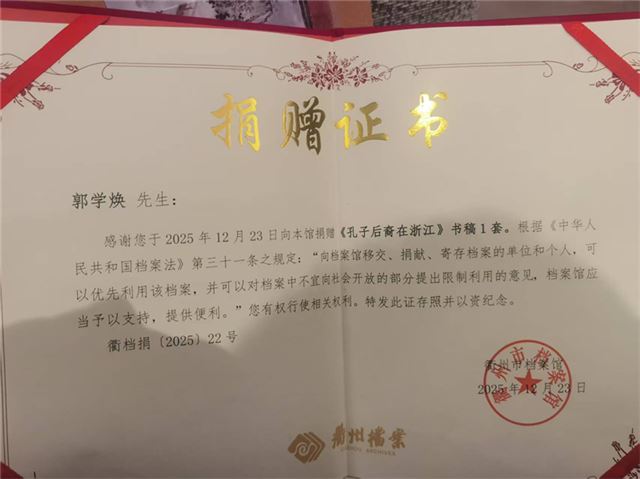 捐赠证书
郭学焕 先生：
感谢您于 2025 年 12 月 23 日向本馆捐赠《孔子后裔在浙江》书稿 1 套。根据《中华人
民共和国档案法》第三十一条之规定：“向档案馆移交、捐献、寄存档案的单位和个人，可
以优先利用该档案，并可以对档案中不宜向社会开放的部分提出限制利用的意见，档案馆应
当予以支持，提供便利。”您有权行使相关权利。特发此证存照并以资纪念。
衢档捐〔2025〕22 号
衢州市档案馆
2025 年 12 月 23 日
衢州市档案馆
衢州档案
QUZHOU ARCHIVES